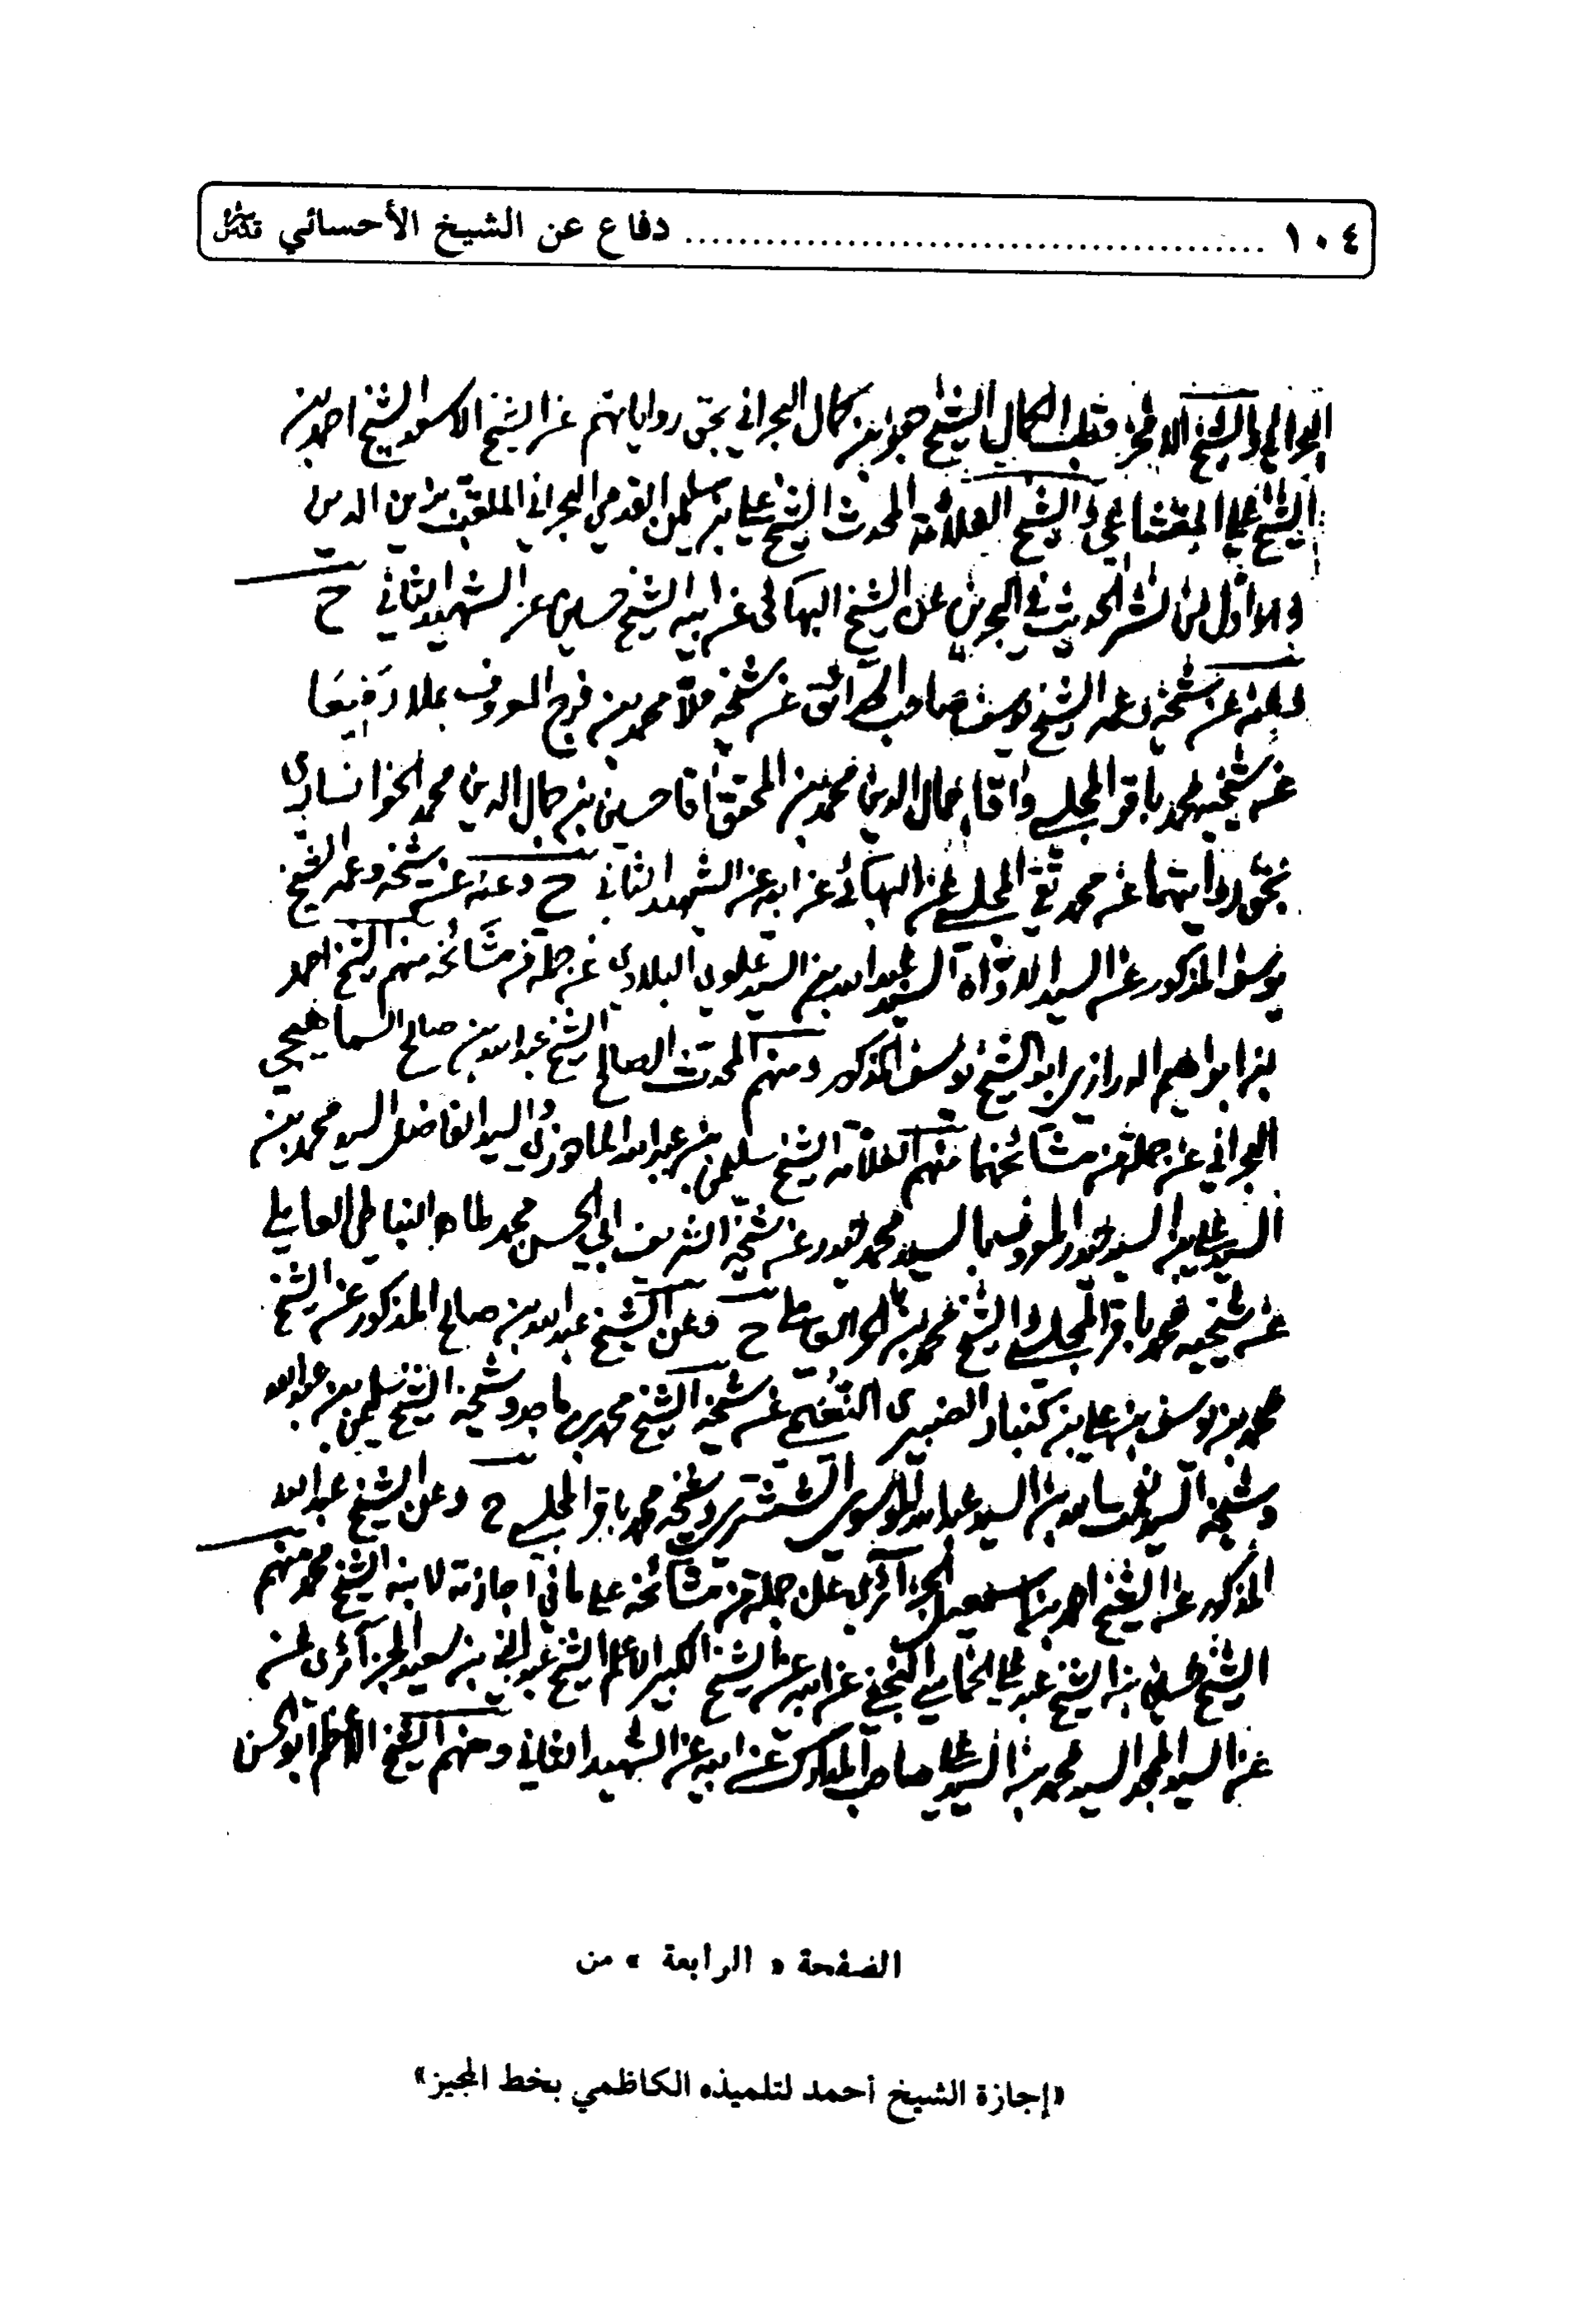 ١٠٤ ........................................ دفاع عن الشيخ الأحسائي قدس سره
البحراني والشيخ الافخر قطب الكمال الشيخ جعفر بن كمال البحراني بحق رواياتهم عن الشيخ الاسعد الشيخ احمد بن
الشيخ علي المقشاعي والشيخ العلامة المحدث الشيخ علي بن سليمن القدمي البحراني الملقب بزين الدين
وهو اول من نشر الحديث في البحرين عن الشيخ البهائي عن ابيه الشيخ حسين عن الشهيد الثاني ح
وعنه عن شيخه وعمه الشيخ يوسف صاحب الحدائق عن شيخه ملا محمد بن فرج المعروف بملا رفيعا
عن شيخيه محمد باقر المجلسي واقا جمال الدين محمد بن المحقق اقا حسين بن جمال الدين محمد الخوانساري
بحق روايتهما عن محمد تقي المجلسي عن البهائي عن ابيه عن الشهيد الثاني ح وعنه عن شيخه وعمه الشيخ
يوسف المذكور عن السيد الاواه السيد عبدالله بن السيد علوي البلادي عن جملة من مشائخه منهم الشيخ احمد
بن ابراهيم الدرازي ابو الشيخ يوسف المذكور ومنهم المحدث الصالح الشيخ عبدالله بن صالح السماهيجي
البحراني عن جملة من مشائخهما منهم العلامة الشيخ سليمن بن عبدالله الماحوزي والسيد الفاضل السيد محمد بن
السيد علي بن السيد حيدر المعروف بالسيد محمد حيدر عن شيخه الشريف ابي الحسن محمد طاهر النباطي العاملي
عن شيخيه محمد باقر المجلسي والشيخ محمد بن الحر العاملي ح وعن الشيخ عبدالله بن صالح المذكور عن الشيخ
محمد بن يوسف بن علي بن كنبار الضبيري النعيمي عن شيخه الشيخ محمد بن ماجد وشيخه الشيخ سليمن بن عبدالله
وشيخه السيد نعمت الله بن السيد عبدالله الموسوي الششتري وشيخه محمد باقر المجلسي ح وعن الشيخ عبدالله
المذكور عن الشيخ احمد بن اسمعيل الجزائري عن جملة من مشائخه على ما في اجازته لابنه الشيخ محمد منهم
الشيخ حسين بن الشيخ عبد علي الخمايسي النجفي عن ابيه عن الشيخ الكبير الاعلم الشيخ عبد النبي بن سعد الجزائري
عن السيد الامجد السيد محمد بن السيد علي صاحب المدارك عن ابيه عن الشهيد الثاني ومنهم الشيخ الاعظم ابو الحسن
الصفحة « الرابعة » من
«إجازة الشيخ أحمد لتلميذه الكاظمي بخط المجيز»